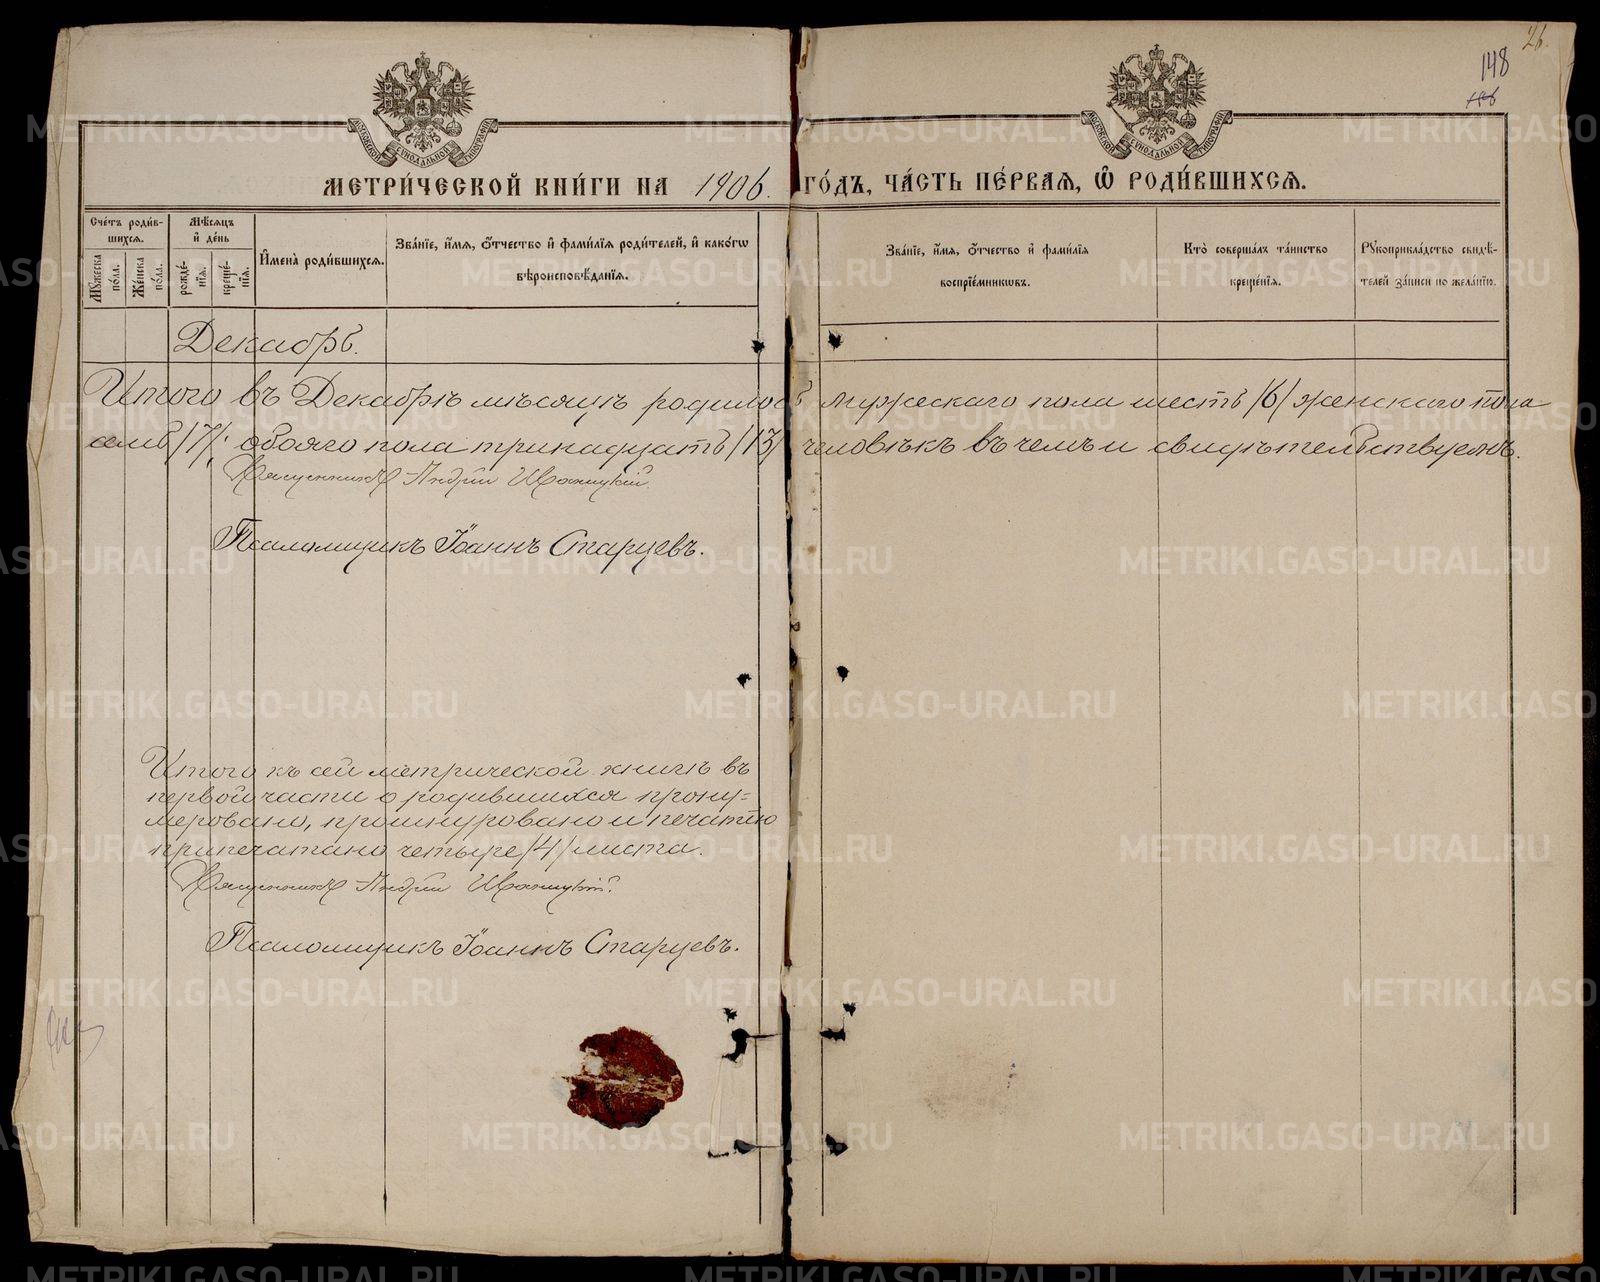 26.
148
МОСКОВСКОЙ СѴНОДАЛЬНОЙ ТИПОГРАФІИ
МОСКОВСКОЙ СѴНОДАЛЬНОЙ ТИПОГРАФІИ
МЕТРИ́ЧЕСКОЙ КНИ́ГИ НА 1906. ГО́ДЪ, ЧА́СТЬ ПЕ́РВАЯ, Ѽ РОДИ́ВШИХСЯ.
Сче́тъ роди́в-
шихся.
Му́жеска по́ла.
Же́нска по́ла.
Мѣ́сяцъ
и҆ де́нь
рожде́-
нїя.
креще́-
нїя.
И҆мена̀ роди́вшихся.
Зва́нїе, и҆́мя, ѻ҆́тчество и҆ фами́лїя роди́телей, и҆ како́гѡ
вѣроисповѣ́данїя.
Зва́нїе, и҆́мя, ѻ҆́тчество и҆ фами́лїя
воспрїе́мникѡвъ.
Кто̀ соверша́лъ та́инство
креще́нїя.
Рꙋкоприкла́дство свидѣ́-
телей за́писи по жела́нїю.
Декабрь.
Итого въ Декабрѣ мѣсяцѣ родилось мужескаго пола шесть /6/ женскаго пола
семь /7/; обоего пола тринадцать /13/ человѣкъ въ чемъ и свидѣтельствуемъ.
Священникъ Андрей Иваницкій.
Псаломщикъ Іоаннъ Старцевъ.
Итого къ сей метрической книгѣ въ
первой части о родившихся прону-
меровано, прошнуровано и печатію
припечатано четыре /4/ листа.
Священникъ Андрей Иваницкій.
Псаломщикъ Іоаннъ Старцевъ.
METRIKI.GASO-URAL.RU